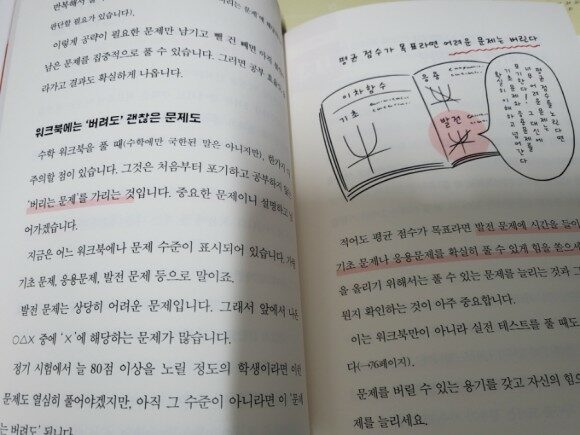 반복해서 풀
판단할 필요가 있습니다).
이렇게 공략이 필요한 문제만 남기고 뺄 건 빼면 아직
남은 문제를 집중적으로 풀 수 있습니다. 그러면 공부 효율
라가고 결과도 확실하게 나옵니다.
워크북에는 '버려도' 괜찮은 문제도
수학 워크북을 풀 때(수학에만 국한된 말은 아니지만), 한가지
주의할 점이 있습니다. 그것은 처음부터 포기하고 공부하지 않는
'버리는 문제'를 가리는 것입니다. 중요한 문제이니 설명하고
어가겠습니다.
지금은 어느 워크북에나 문제 수준이 표시되어 있습니다.
기초 문제, 응용문제, 발전 문제 등으로 말이죠.
발전 문제는 상당히 어려운 문제입니다. 그래서 앞에서 나온
○△X 중에 'X'에 해당하는 문제가 많습니다.
정기 시험에서 늘 80점 이상을 노릴 정도의 학생이라면 이런
문제도 열심히 풀어야겠지만, 아직 그 수준이 아니라면 이 '문제
는 버려도' 됩니다.
평균 점수가 목표라면 어려운 문제는 버린다
이차함수
기초
응용
발전
평균 점수를 노린다면
너무 어려운 문제는
포기한다! 그 대신에
기초 문제와 응용문제를
확실히 이해하고 넘어간다
적어도 평균 점수가 목표라면 발전 문제에 시간을 들이
기초 문제나 응용문제를 확실히 풀 수 있게 힘을 쏟으세
을 올리기 위해서는 풀 수 있는 문제를 늘리는 것과 그
뭔지 확인하는 것이 아주 중요합니다.
이는 워크북만이 아니라 실전 테스트를 풀 때도
다(→76페이지).
문제를 버릴 수 있는 용기를 갖고 자신의 힘으
제를 늘리세요.